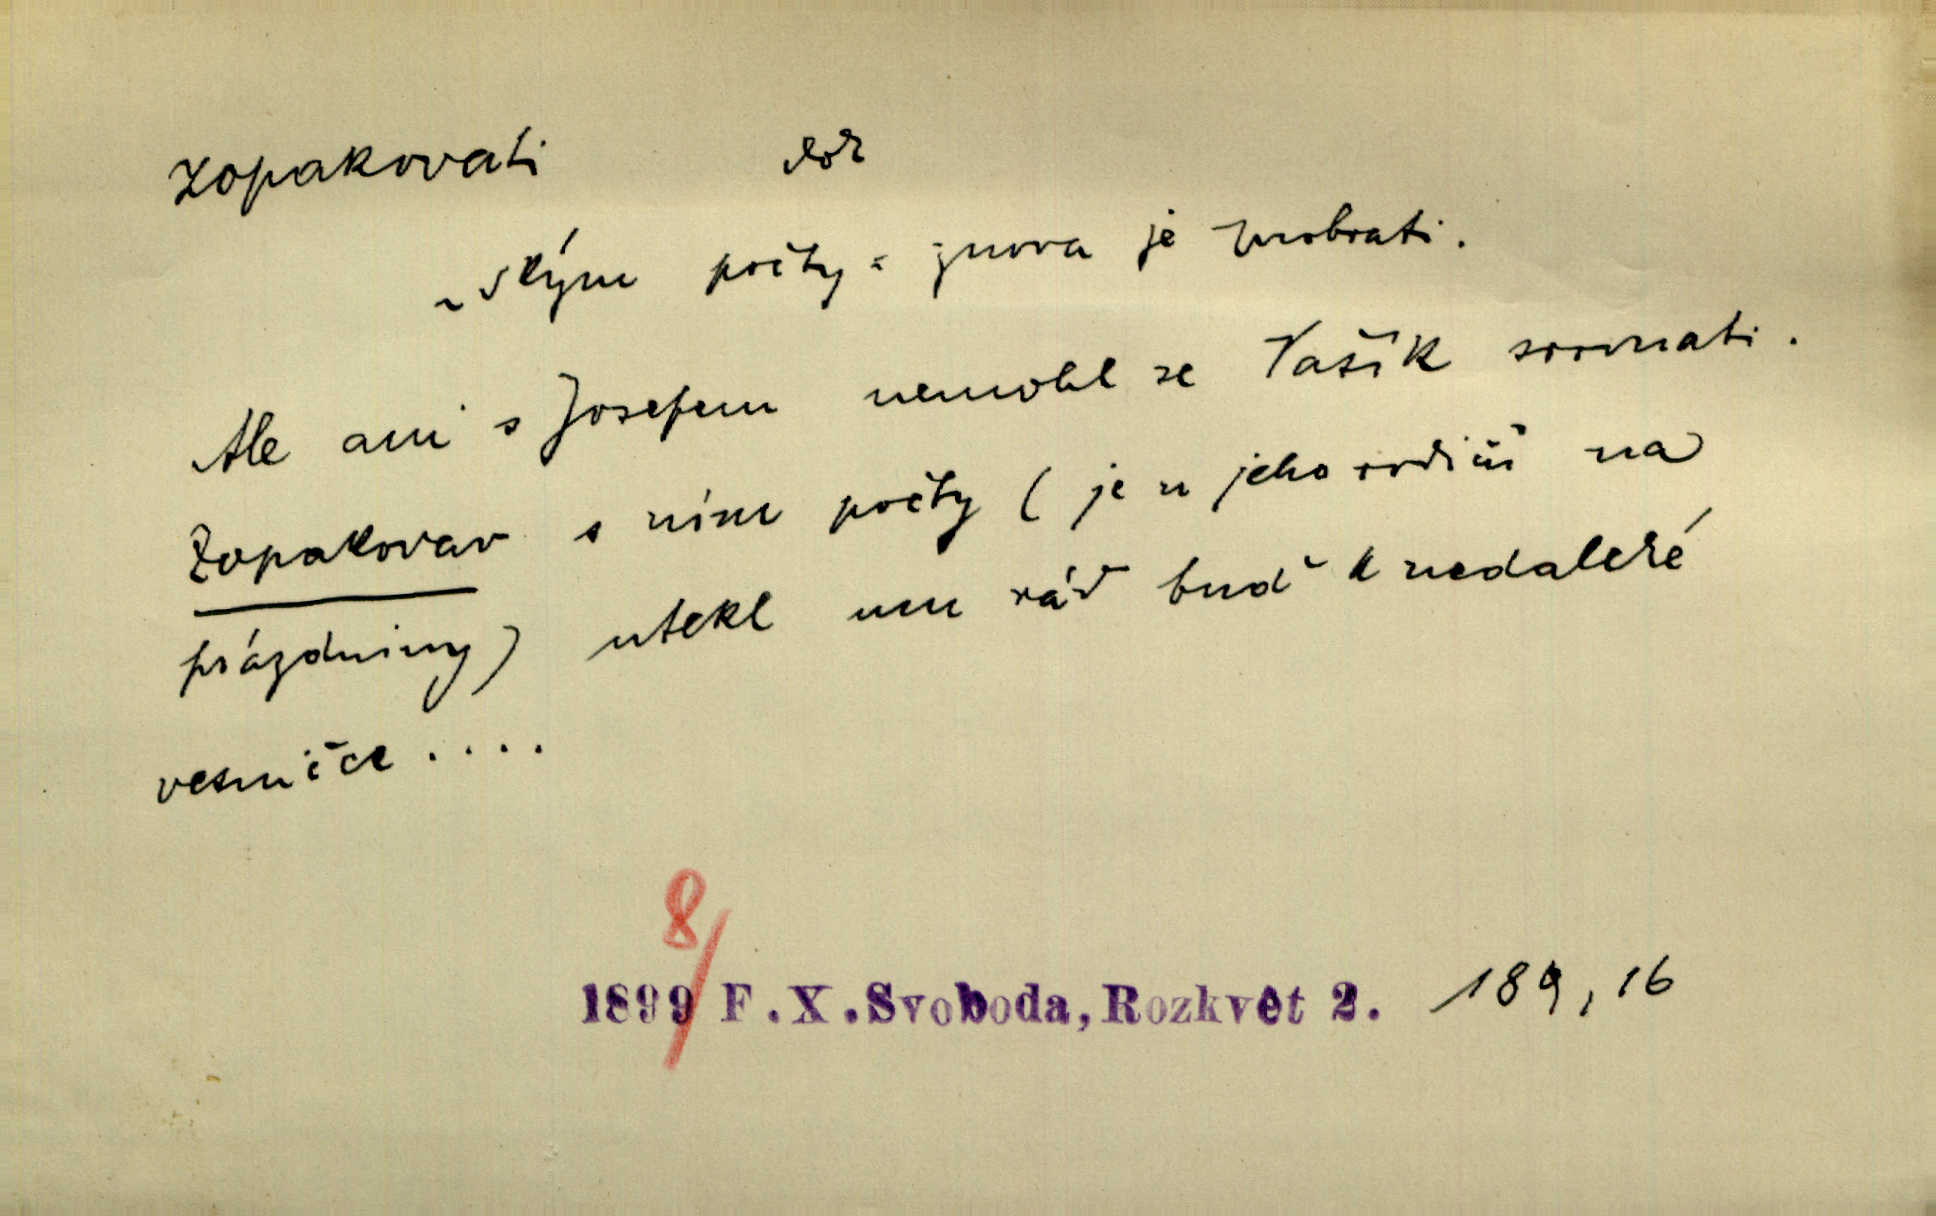 zopakovati dok
~ s kým počty = znova je probrati.
Ale ani s Josefem nemohl se Vašík srovnati.
Zopakovav s ním počty (je u jeho rodičů na
prázdniny) utekl mu rád buď k nedaleké
vesničce....
8/
1899 F.X.Svoboda, Rozkvět 2. 189, 16